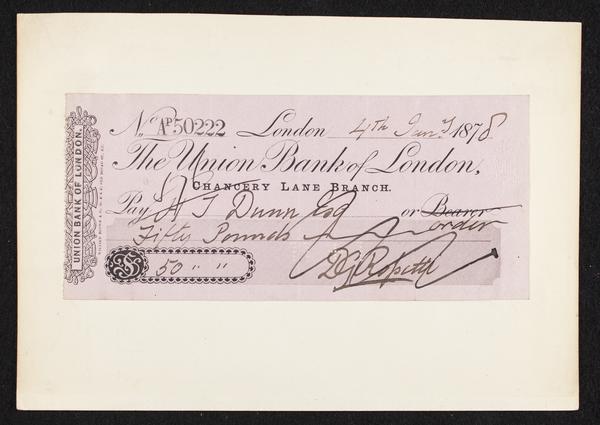 UNION BANK OF LONDON.
No. AP50222 London 4th Jany 1878
The Union Bank of London,
CHANCERY LANE BRANCH.
Pay H T Dunn Esq or Bearer
order
Fifty Pounds
50 " "
DG Rossetti